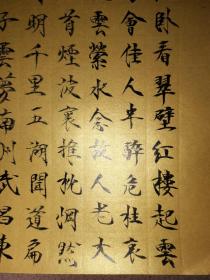 卧看翠壁紅樓起雲
會佳人半醉危柱哀
雲縈水念故人老大
首煙波裏推枕惘然
明千里五湖聞道扁
子雲夢南州武昌東